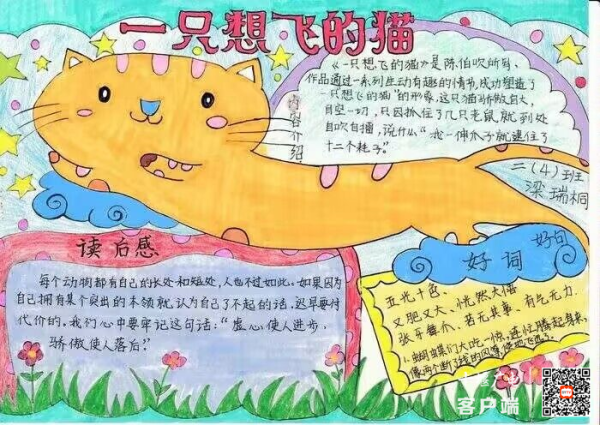 一只想飞的猫
内容介绍
《一只想飞的猫》是陈伯吹所写、
作品通过一系列生动有趣的情节,成功塑造了
一只想飞的猫"的形象,这只猫骄傲自大,
目空一切,只因抓住了几只老鼠,就到处
自吹自擂,说什么"我一伸爪子就逮住了
十二个耗子"。
二(4)班
梁瑞桐
读后感
每个动物都有自己的长处和短处,人也不过如此。如果因为
自己拥有某个突出的本领就认为自己了不起的话,迟早要付
代价的。我们心中要牢记这句话:"虚心使人进步,
骄傲使人落后。"
好词
好句
五光十色、
又肥又大、恍然大悟
张牙舞爪、若无其事、有气无力.
1.蝴蝶们大吃一惊,连忙腾起身来,
像两个断了线的风筝
客户端